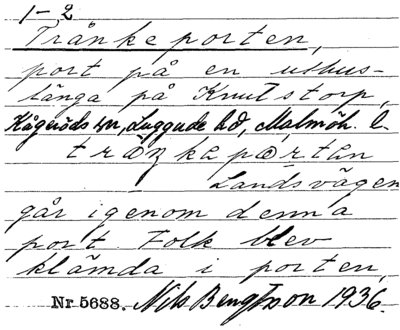 1-2
Trånkeporten,
port på en uthus-
länga på Knutstorp,
Kågeröds sn, Luggude hd, Malmöh. l.
Landsvägen
går igenom denna
port. Folk blev
klämda i porten,
Nr 5688. Nils Bengtsson 1936.